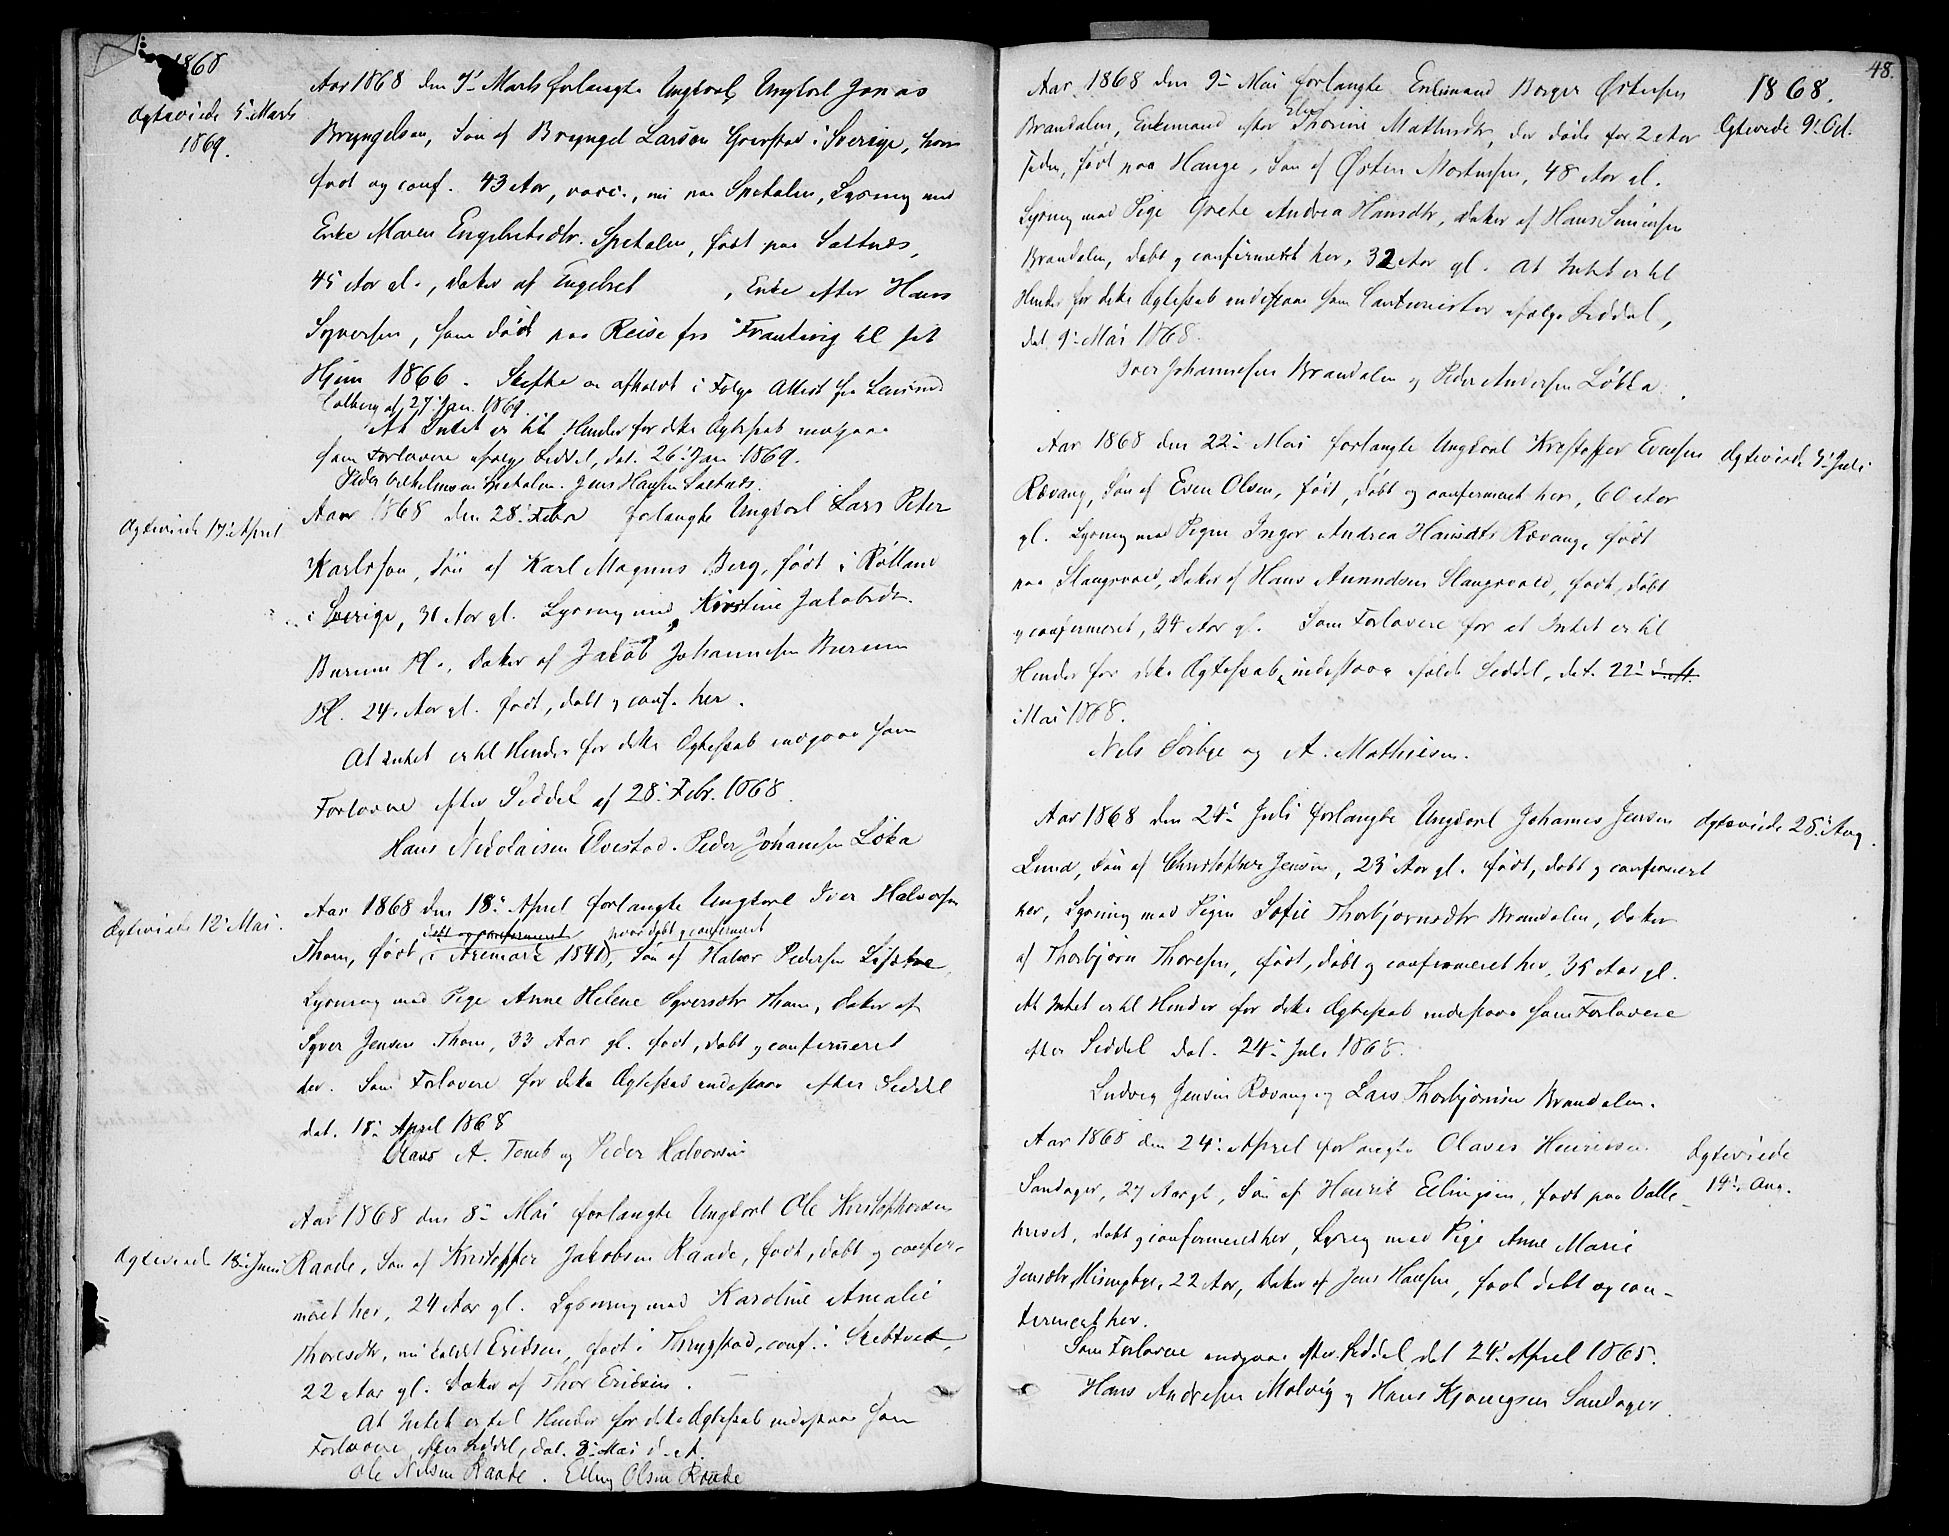 1868
Aar 1868 den 9de Marts forlangte Ungkarl, Ungkarl Jonas
Ægteviede 5te Marts
1869.
Bryngelsen, Søn af Bryngel Larsen i Sverige, hvor
født og conf. 43 Aar, vacc., nu paa Spetalen, Lysning med
Enke Maren Engebretsdtr. Spetalen, født paa Saltnes,
45 Aar gl., Datter af Engebret , Enke efter Hans
Syversen, som døde paa Reise fra til sit
Hjem 1866. Skifte er afholdt i Følge Attest fra Lensmd
Colberg af 27 Jan. 1869.
At Intet er til Hinder for dette Ægteskab indgaae
som Forlovere ifølge Seddel, dat. 26 Jan 1869.
Peder Vilhelmsen Spetalen. Jens Hansen Saltnes.
Ægteviede 17de April
Aar 1868 den 28 Febr forlangte Ungkarl Lars Peter
Karlsson, Søn af Karl Magnus Berg, født i Rølland
i Sverige, 31 Aar gl. Lysning med Kirstine Jakobsdtr.
Burum Pl., Datter af Jakob Johannesen Burum
Pl. 24 Aar gl. født, døbt og conf. her.
At Intet er til Hinder for dette Ægteskab indgaae som
Forlovere efter Seddel af 28 Febr. 1868.
Hans Nikolaisen Elvestad. Peder Johansen Løka
Ægteviede 12te Mai.
Aar 1868 den 18de April forlangte Ungkarl Iver Halvorsen
døbt og confirmeret døbt og confirmeret
Thom, født i Aremark 1841, Søn af Halvor Pedersen
Lysning med Pige Anne Helene Syversdtr Thom, Datter af
Syver Jensen Thom, 33 Aar gl. født, døbt og confirmeret
her. Som Forlovere for dette Ægteskab indestaae efter Seddel
dat. 18de April 1868
Olavs A. Tomb og Peder Halvorsen
Aar 1868 den 8de Mai forlangte Ungkarl Ole Kristophersen
Ægteviede 18de Juni
Raade, Søn af Kristoffer Jakobsen Raade, født, døbt og confir-
meret her, 24 Aar gl. Lysning med Karoline Amalie
Thoresdtr, nu kaldt Eriksen, født i Thrygstad, conf. i Skibtvet,
22 Aar gl. Datter af Thor Eriksen.
At Intet er til Hinder for dette Ægteskab indestaae som
Forlovere efter Seddel, dat. 8de Mai d. A.
Ole Nilsen Raade. Elling Olsen Raade
48.
1868.
Aar 1868 den 9de Mai forlangte Enkemand Borger Østensen
Ægteviede 9de Oct.
Brandalen, Enkemand efter Thorine Mathisdtr, der døde for 2 Aar
siden, født paa Hauge, Søn af Østen Mortensen, 48 Aar gl.
Lysning med Pige Grete Andrea Hansdtr, Datter af Hans Simensen
Brandalen, døbt og confirmeret her, 32 Aar gl. At Intet er til
Hinder for dette Ægteskab indestaae som Cautionister ifølge Seddel,
dat. 9de Mai 1868.
Iver Johannesen Brandalen og Peder Andersen Løkka.
Aar 1868 den 22de Mai forlangte Ungkarl Kristoffer Evensen
Ægteviede 3de Juli
Rævang, Søn af Even Olsen, født, døbt og confirmeret her, 60 Aar
gl. Lysning med Pigen Inger Andrea Hansdtr Rævang, født
paa Slangsvold, Datter af Hans Amundsen Slangsvold, født, døbt
og confirmeret, 34 Aar gl. Som Forlovere for at Intet er til
Hinder for dette Ægteskab indestaae ifølge Seddel, dat. 22de
Mai 1868.
Nels Sørbye og A. Mathiesen.
Aar 1868 den 24de Juli forlangte Ungkarl Johannes Jensen
Ægteviede 28de Aug.
Lund, Søn af Christopher Jensen, 23 Aar gl. født, døbt og confirmeret
her, Lysning med Pigen Sofie Thorbjørnsdtr Brandalen, Datter
af Thorbjørn Thoresen, født, døbt og confirmeret her, 35 Aar gl.
At Intet er til Hinder for dette Ægteskab indestaae som Forlovere
efter Seddel dat. 24de Juli 1868.
Ludvig Jensen Rævang og Lars Thorbjørnsen Brandalen.
Aar 1868 den 24de April forlangte Olaves Henriksen
Ægteviede
19de Aug.
Sandager, 27 Aar gl, Søn af Henrik Ellingsen, født paa Valle-
huset, døbt og confirmeret her, Lysning med Pige Anne Marie
Jensdtr Missingbye, 22 Aar, Datter af Jens Hansen, født døbt og con-
firmeret her.
Som Forlovere indgaae efter Seddel, dat 24de April 1868.
Hans Andresen Molvig og Hans Sandager.